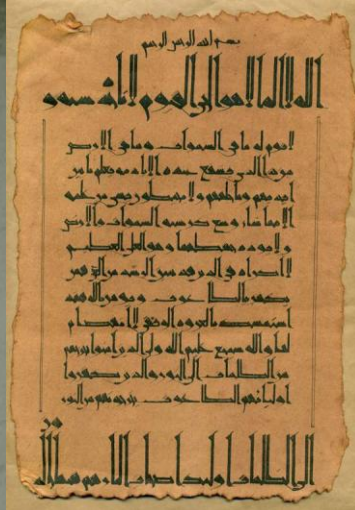 بسم الله الرحمن الرحيم
الله لا اله الا هو الحي القيوم لا تأخذه سنة و
لا نوم له ما في السموات وما في الارض
من ذا الذي يشفع عنده الا باذنه يعلم ما بين
ايديهم وما خلفهم ولا يحيطون بشيء من علمه
الا بما شاء وسع كرسيه السموات والارض
ولا يؤده حفظهما وهو العلي العظيم
لا اكراه في الدين قد تبين الرشد من الغي فمن
يكفر بالطاغوت ويؤمن بالله فقد
استمسك بالعروة الوثقى لا انفصام
لها والله سميع عليم الله ولي الذين آمنوا يخرجهم
من الظلمات الى النور والذين كفروا
اولياؤهم الطاغوت يخرجونهم من النور
الى الظلمات اولئك اصحاب النار هم فيها خالدون